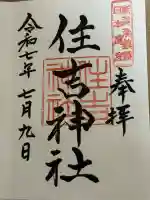 奉拝
住吉神社
令和七年七月九日